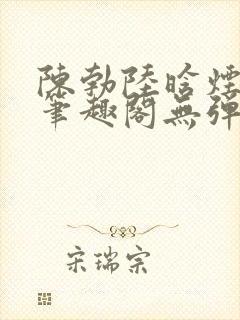 陳勃陸晗煙
筆趣閣無彈
宋瑞宗